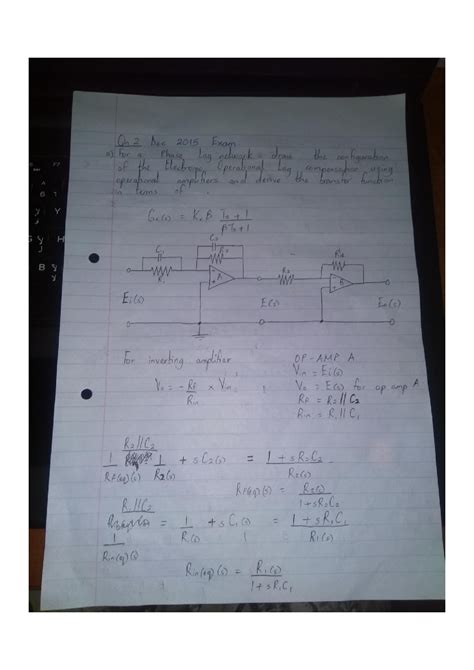 Qn 2 Dec 2015 Exam
a) For a Phase Lag network - draw this configuration
of the Electronic Operational Lag compensator using
operational amplifiers and derive the transfer function
in terms of
Gc(s) = Kc β Ts + 1 / βTs + 1
C2
C1 R2
R4
R1 A R3 B
Ei(s) E(s) Eo(s)
For inverting amplifier OP-AMP A
Vin = Ei(s)
Vo = - RF / Rin × Vin ; Vo = E(s) for op amp A
RF = R2 // C2
Rin = R1 // C1
R2 // C2
1 / RF(eq)(s) 1 / R2(s) + sC2(s) = 1 + sR2C2 / R2(s)
RF(eq)(s) = R2(s) / 1 + sR2C2
R1 // C1
1 / Rin(eq)(s) = 1 / R1(s) + sC1(s) = 1 + sR1C1 / R1(s)
Rin(eq)(s) = R1(s) / 1 + sR1C1